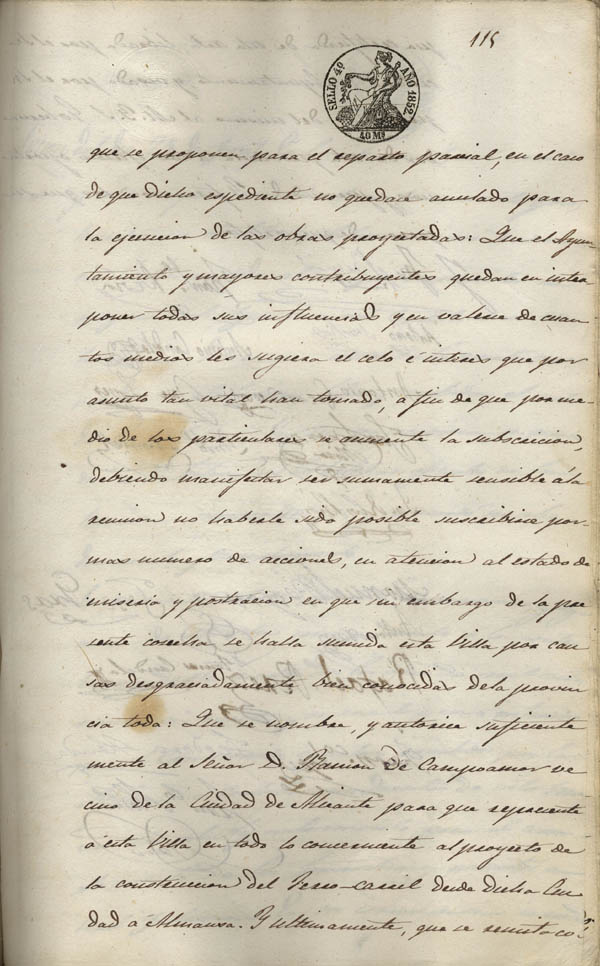 115
SELLO 4º AÑO 1852
40 Ms
que se proponen para el reparto parcial, en el caso
de que dicho espediente no quedare anulado para
la ejecucion de las obras proyectadas: Que el Ayun-
tamiento y mayores contribuyentes quedan en inter
poner todas sus influencias y en valerse de cuan
tos medios les sugiera el celo é interes que por
asunto tan vital han tomado, a fin de que por me
dio de los particulares se aumente la subscricion,
debiendo manifestar ser sumamente sensible á la
reunion no haberle sido posible suscribirse por
mas numero de acciones, en atencion al estado de
miseria y postracion en que sin embargo de la pre
sente cosecha se halla sumida esta Villa por cau
sas desgraciadamente bien conocidas de la provin
cia toda: Que se nombre, y autorice suficiente
mente al Señor D. Ramon de Campoamor ve
cino de la Ciudad de Alicante para que represente
á esta Villa en todo lo concerniente al proyecto de
la construccion del Ferro-carril desde dicha Ciu
dad á Almansa. Y ultimamente, que se remita có